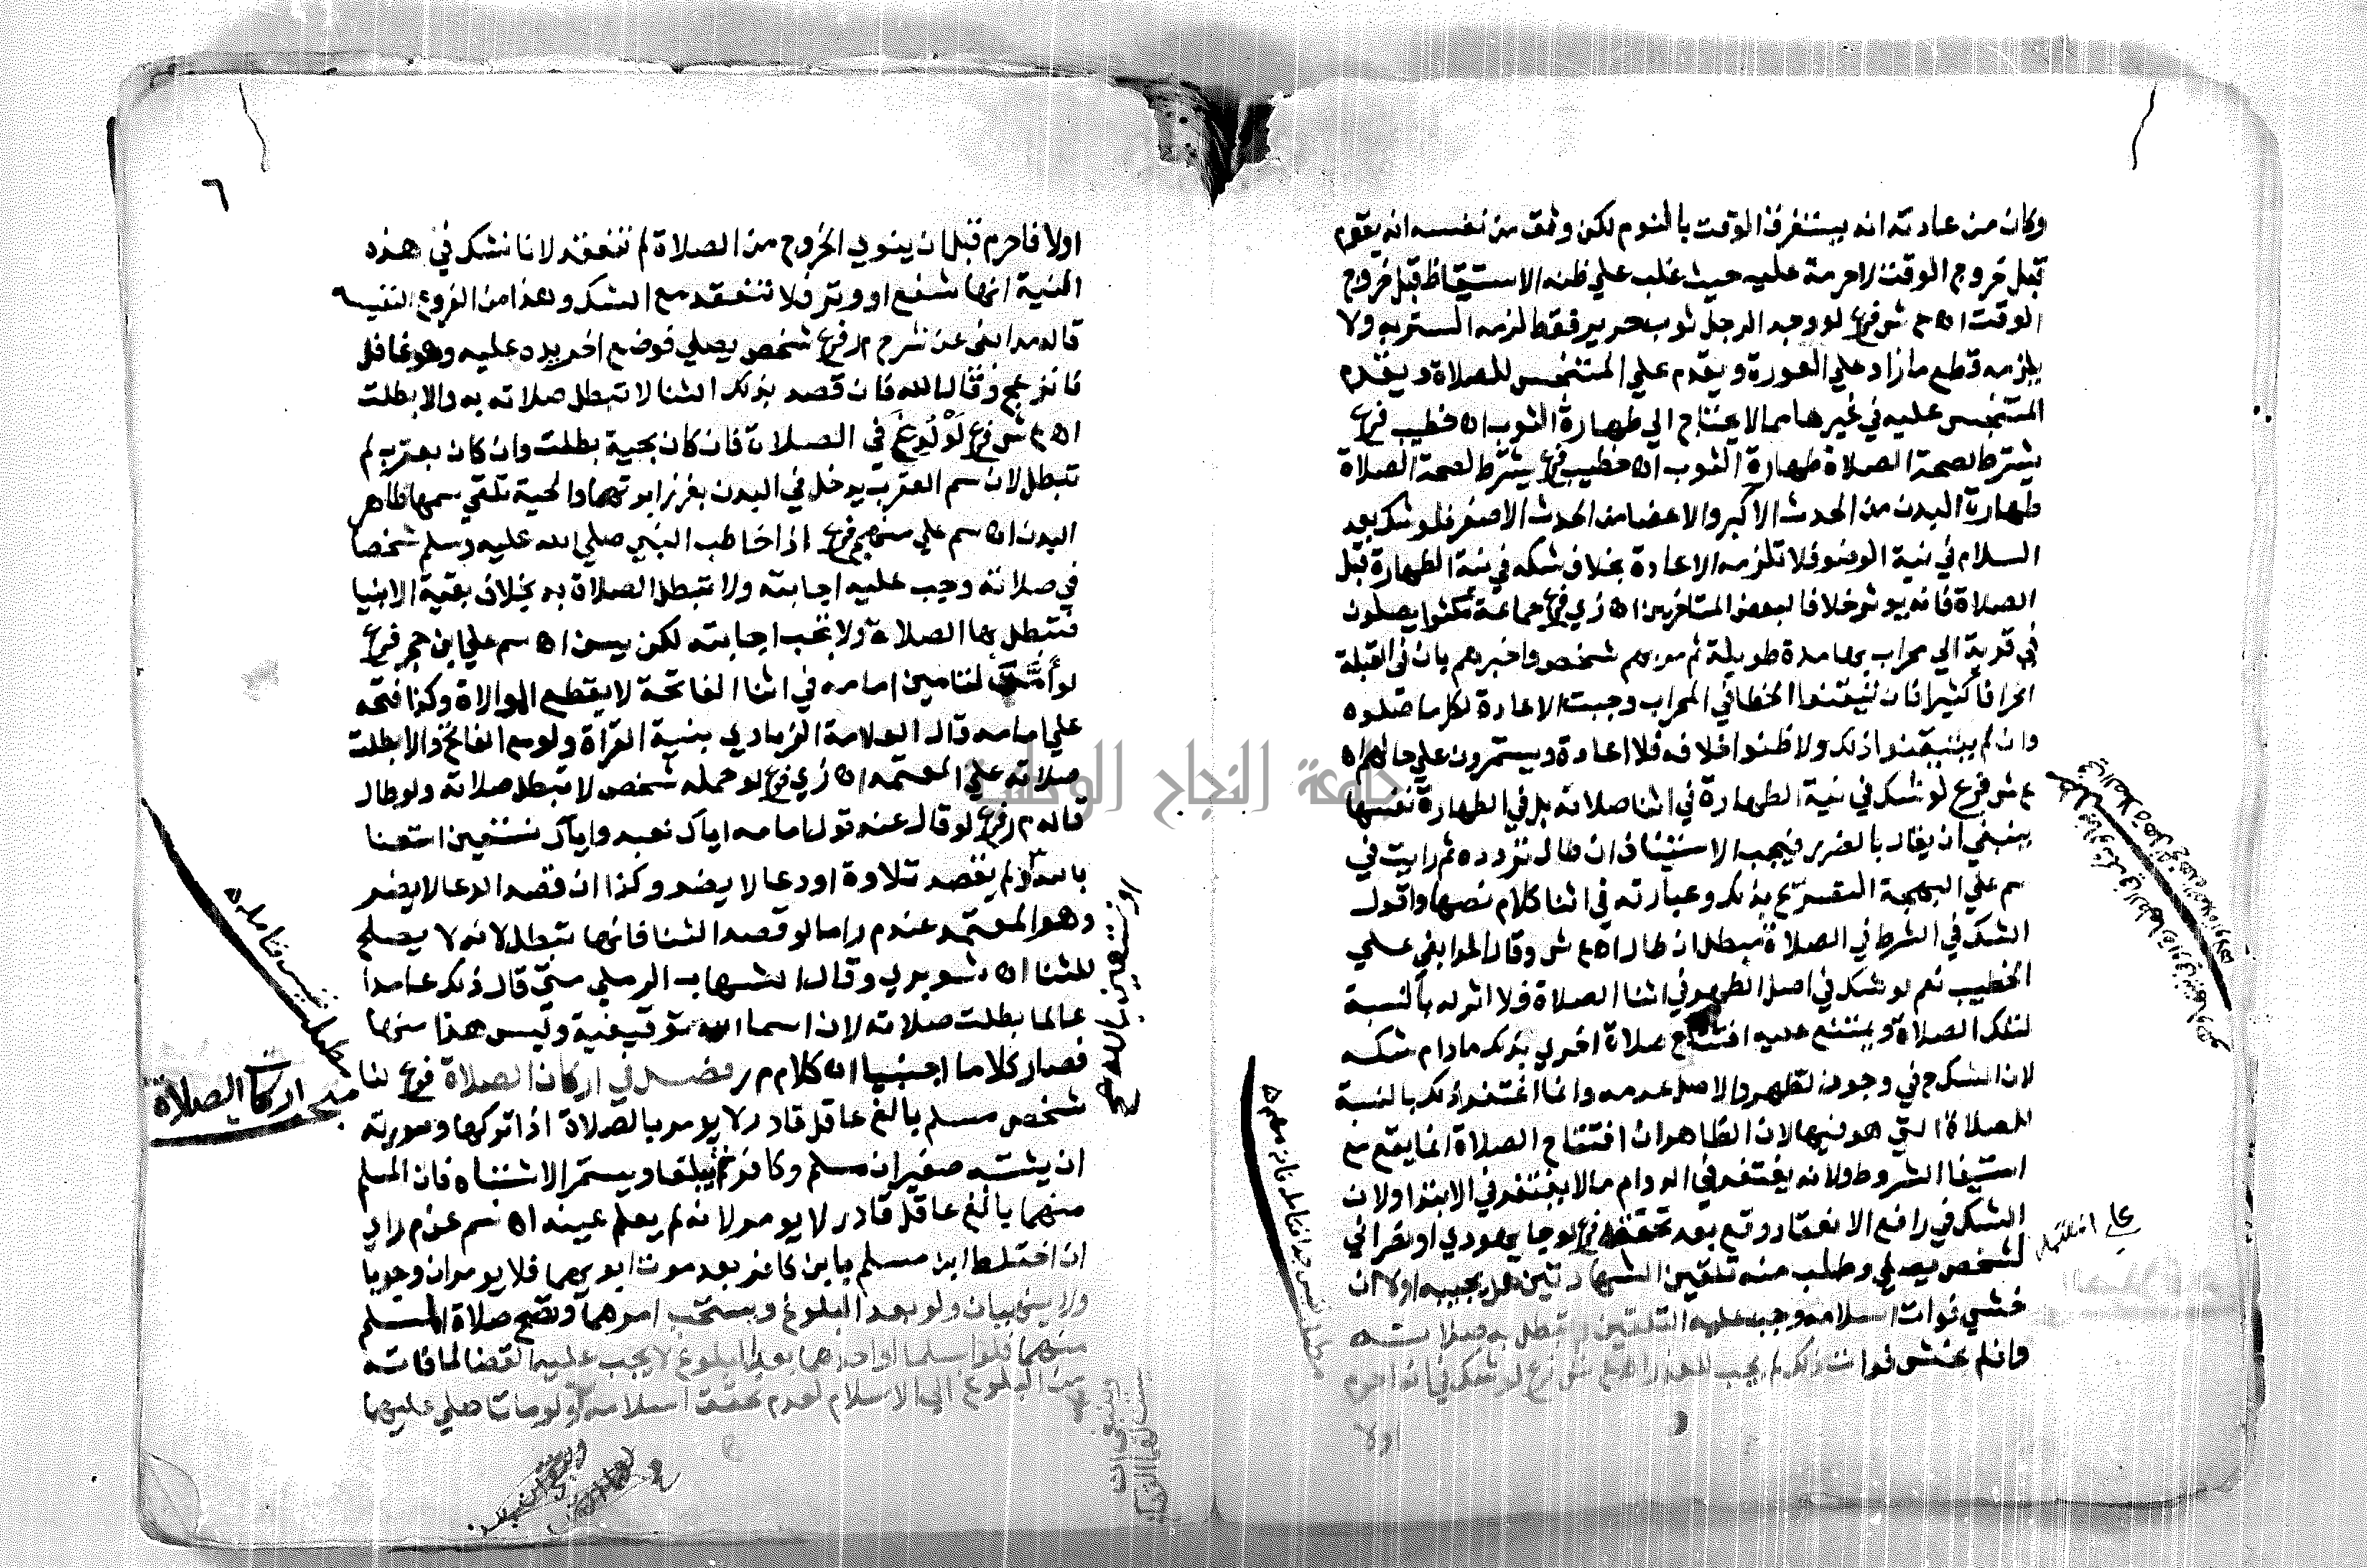 وكان من عادته انه يستغرق الوقت بالنوم لكن وثق من نفسه انه يقوم
قبل خروج الوقت لا حرمة عليه حيث غلب علي ظنه الاستيقاظ قبل خروج
الوقت اه ع ش فرع لو وجد الرجل ثوب حرير فقط لزمه الستر به ولا
يلزمه قطع ما زاد علي العورة ويقدم علي المتنجس للصلاة ويقدم
المتنجس عليه في غيرها مما لا يحتاج الي طهارة الثوب اه خطيب فرع
يشترط لصحة الصلاة طهارة الثوب اه خطيب فرع يشترط لصحة الصلاة
طهارة البدن من الحدث الاكبر والاعضا من الحدث الاصغر فلو شك بعد
السلام في نية الوضو فلا تلزمه الاعادة بخلاف شكه في نية الطهارة قبل
الصلاة فانه يوثر خلافا لبعض المتاخرين اه زي فرع جماعة مكثوا يصلون
في قرية الي محراب بها مدة طويلة ثم مر بهم شخص واخبرهم بان في القبلة
انحرافا كثيرا فان تيقنوا الخطا في المحراب وجبت الاعادة لكل ما صلوه
وان لم يتيقنوا ذلك ولا ظنوا خلافه فلا اعادة ويستمرون علي حالهم اه
ع ش فرع لو شك في نية الطهارة في اثنا صلاته بل في الطهارة نفسها
ينبغي ان يقال بالضرر فيجب الاستيناف ان طال تردده ثم رايت في
سم علي البهجة التصريح بذلك وعبارته في اثنا كلام نصها واقول
الشك في الشرط في الصلاة مبطل ان طال اه ع ش وقال المدابغي علي
الخطيب نعم لو شك في اصل الطهر في اثنا الصلاة فلا اثر له بالنسبة
لتلك الصلاة ويمتنع عليه افتتاح صلاة اخري بذلك مادام شكه
لان الشك في وجود الطهر والاصل عدمه وانما اغتفر ذلك بالنسبة
للصلاة التي هو فيها لان الظاهر ان افتتاح الصلاة انما يقع مع
استيفا الشروط ولانه يغتفر في الدوام ما لا يغتفر في الابتدا ولان
الشك في رافع الانعقاد وقع بعد تحققه فرع لو جا يهودي او نصراني
لشخص يصلي وطلب منه تلقين الشهادتين هل يجيبه اولا ان
خشي فوات اسلامه وجب عليه التلقين وتبطل به صلاته
وان لم يخش فوات ذلك لم يجب ع ش فرع لو شك في انه احرم
اولا
علي المعتمد
٦
اولا فاحرم قبل ان ينوي الخروج من الصلاة لم تنعقد لانا نشك في هذه
النية انها شفع او وتر فلا تنعقد مع الشك وهذا من الفروع النفيسه
قاله مدابغي عن شرح م ر فرع شخص يصلي فوضع اخر يده عليه وهو غافل
فانزعج وقال الله فان قصد بذلك الثنا لا تبطل صلاته به والا بطلت
اه ع ش فرع لو لدغ في الصلاة فان كان بحية بطلت وان كان بعقرب لم
تبطل لان سم العقرب يدخل في البدن بغرز ابرتها والحية تلقي سمها ظاهر
البدن اه سم علي منهج فرع اذا خاطب النبي صلي الله عليه وسلم شخصا
في صلاته وجب عليه اجابته ولا تبطل الصلاة به بخلاف بقية الانبيا
فتبطل بها الصلاة ولا تجب اجابته لكن يسن اه سم علي ابن حجر فرع
لو أمّن لتامين امامه في اثنا الفاتحة لا يقطع الموالاة وكذا فتحه
علي امامه قال العلامة الزيادي بنية القراة ولو مع الفتح والا بطلت
صلاته علي المعتمد اه زي فرع لو حمله شخص لا تبطل صلاته ولو طال
قاله م ر فرع لو قال عند قول امامه اياك نعبد واياك نستعين استعنا
بالله ولم يقصد تلاوة او دعا لا يضر وكذا ان قصد الدعا لا يضر
وهو المعتمد عند م ر اما لو قصد الثنا فانها تبطل لانه لا يصلح
للثنا اه شوبري وقال الشهاب الرملي متي قال ذلك عامدا
عالما بطلت صلاته لان اسما الله توقيفية وليس هذا منها
فصار كلاما اجنبيا اه كلام م ر فصل في اركان الصلاة فرع لنا
شخص مسلم بالغ عاقل قادر لا يومر بالصلاة اذا تركها وصورته
ان يشتبه صغيران مسلم وكافر ثم يبلغا ويستمر الاشتباه فان المسلم
منهما بالغ عاقل قادر لا يومر لانه لم يعلم عينه اه سم عن م ر اي
ان اختلط ابن مسلم بابن كافر بعد موت ابويهما فلا يومران وجوبا
ولا ينهيان ولو بعد البلوغ ويستحب امرهما وتصح صلاة المسلم
منهما فلو اسلما او احدهما بعد البلوغ لا يجب عليه القضا لما فاته
من البلوغ الي الاسلام لعدم تحقق اسلامه ولو ماتا صلي عليهما
مبحث اركان الصلاة